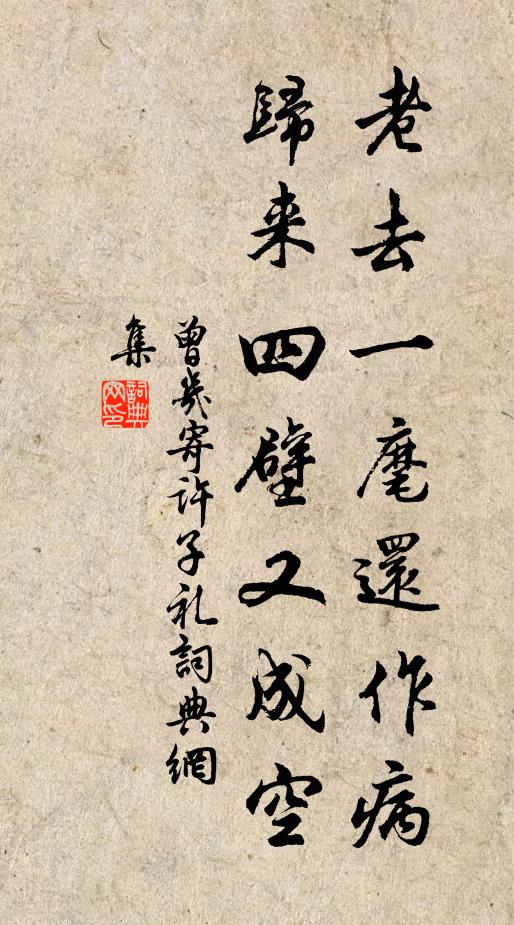 老去一麾還作病
歸来四壁又成空
曾幾寄许子礼詞典網
集
詞典網印